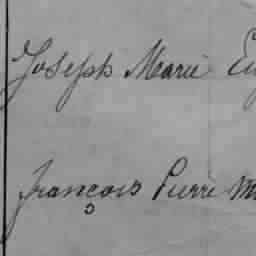 Joseph Marie
françois Pierre